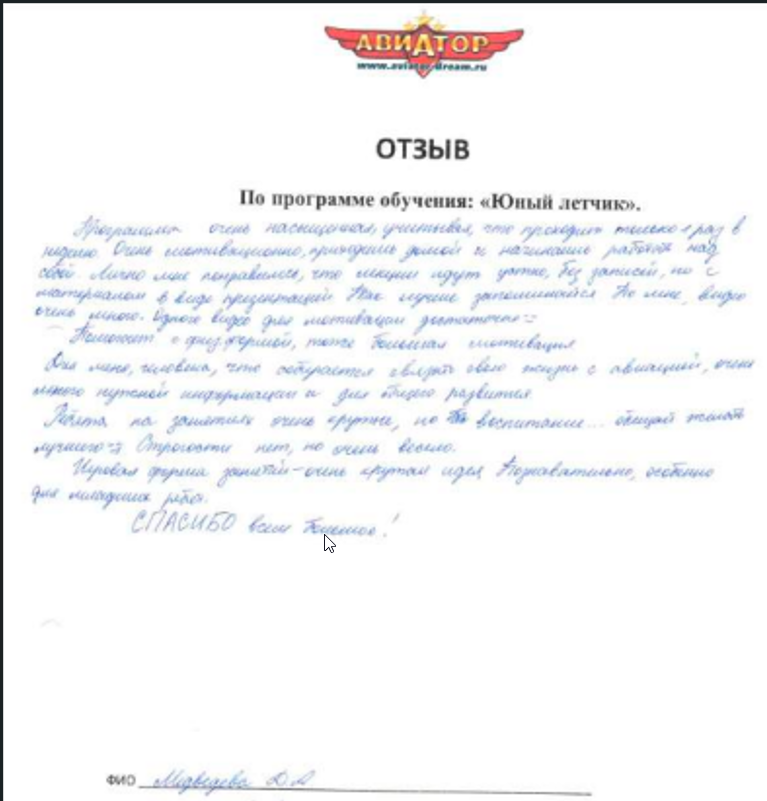 АВИАТОР
www.aviator-dream.ru
ОТЗЫВ
По программе обучения: «Юный летчик».
Программа очень насыщенная, учитывая, что проходит только 1 раз в
неделю. Очень мотивационно, приходишь домой и начинаешь работать над
собой. Лично мне понравилось, что лекции идут устно, без записей, но с
материалом в виде презентаций. Так лучше запоминается. По мне, видео
очень много. Одного видео для мотивации достаточно =
Помогает с физ.формой, тоже большая мотивация
Для меня, человека, что собирается связать свою жизнь с авиацией, очень
много нужной информации и для общего развития
Ребята на занятиях очень крутые, но воспитание... обещай желать
лучшего =) Строгости нет, но очень весело.
Игровая форма занятий - очень крутая идея Познавательно, особенно
для младших ребят.
СПАСИБО всем большое!
ФИО Медведева Д.А